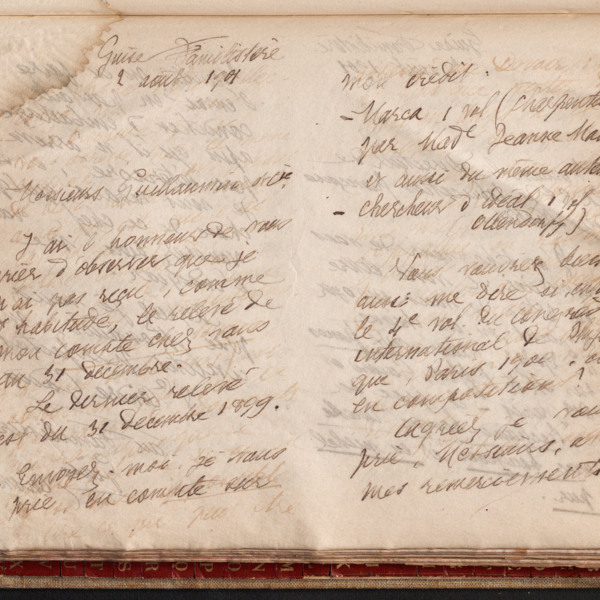 Guise Familistère
2 août 1901
Messieurs Guillaumin & Cie
J'ai l'honneur de vous
prier d'observer que je
n'ai pas reçu, comme
d'habitude, le relevé de
mon compte chez vous
au 31 décembre.
Le dernier relevé
est du 31 décembre 1899.
Envoyez-moi, je vous
prie, en compte sur
mon crédit.
- Marca 1 vol (Charpentier
par Made Jeanne Mar
et aussi du même auteu
- chercheurs d'idéal 1 vol
Ollendorff)
Vous voudrez bien
aussi me dire si
le 4e vol. du Congrès
international de
que, Paris 1900
en composition?
Agréez, je vous
prie, Messieurs,
mes remerciements